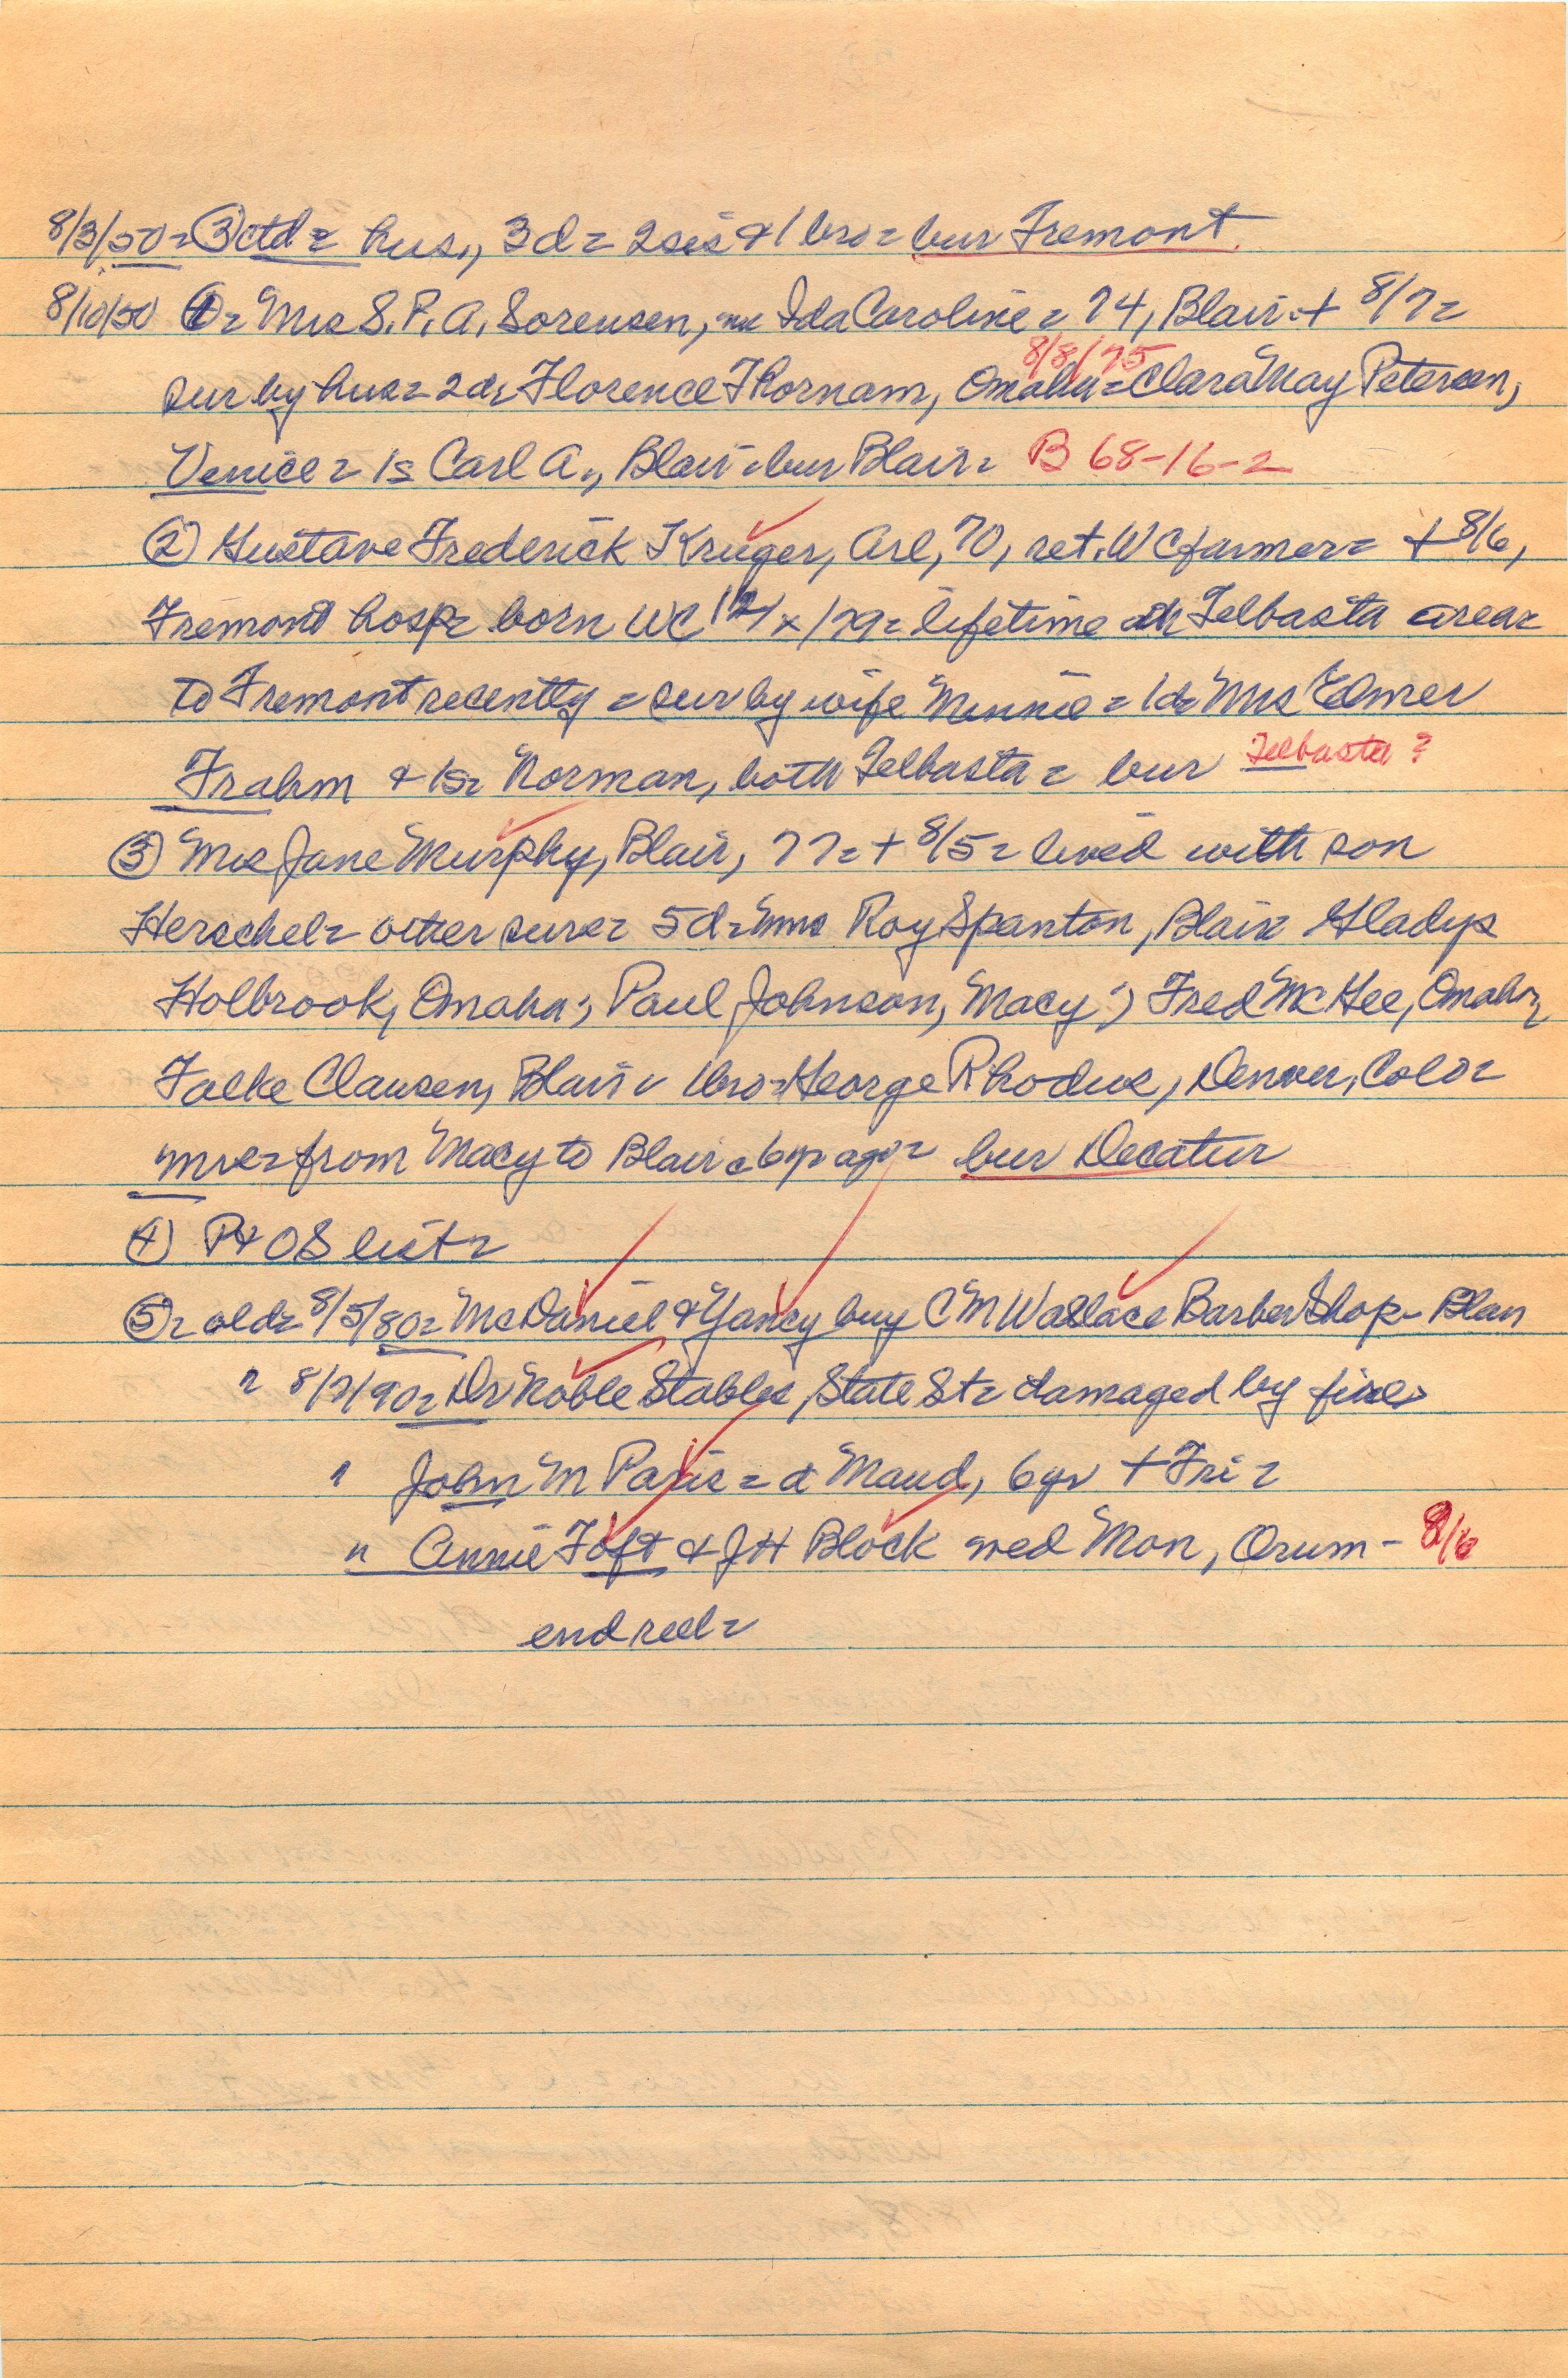 8/3/50 = ③ ctd = hus., 3d = 2 sis & 1 bro = bur Fremont.
8/10/50 ① = Mrs S. P. A. Sorensen, nee Ida Caroline = 74, Blair + 8/7 =
8/8/75
sur by hus = 2d = Florence Thornam, Omaha = Clara May Petersen,
Venice = 1s Carl A., Blair = bur Blair = B 68-16-2
② Gustave Frederick Kruger, Arl, 70, ret. WC farmer = + 8/6,
Fremont hosp = born WC 12/x/79 = lifetime Telbasta area =
to Fremont recently = sur by wife Minnie = 1d = Mrs Elmer
Frahm & 1s = Norman, both Telbasta = bur Telbasta ?
③ Mrs Jane Murphy, Blair, 77 = + 8/5 = lived with son
Herschel = other surs = 5d = Mms Roy Spanton, Blair Gladys
Holbrook, Omaha; Paul Johnson, Macy; Fred McGee, Omaha,
Falke Clausen, Blair 1bro = George Rhodus, Denver, Colo =
from Macy to Blair 6 yr ago = bur Decatur
④ P & OS list =
⑤ = old = 8/5/80 = McDaniel & Yancy buy C M Wallace Barber Shop - Blair
" 8/7/90 = Dr Noble Stables, State St = damaged by fire
" John M Paris = d Maud, 6 yr + Fri =
" Annie Toft & J H Block wed Mon, Orum - 8/6
end reel =